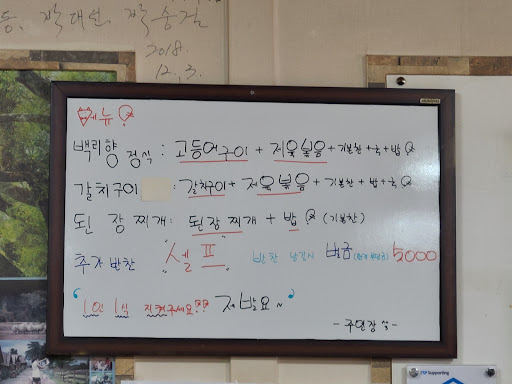 등, 곽대선, 곽승길
2018.
12. 3.
메뉴
백리향 정식 : 고등어구이 + 저육볶음 + 기본찬 + 국 + 밥
갈치구이 : 갈치구이 + 저육볶음 + 기본찬 + 밥 + 국
된장찌개 : 된장찌개 + 밥 (기본찬)
추가반찬 셀프 반찬 남길시 벌금 5000
"1인 1식 지켜주세요?? 제발요~"
- 주인장 -
ITP Supporting